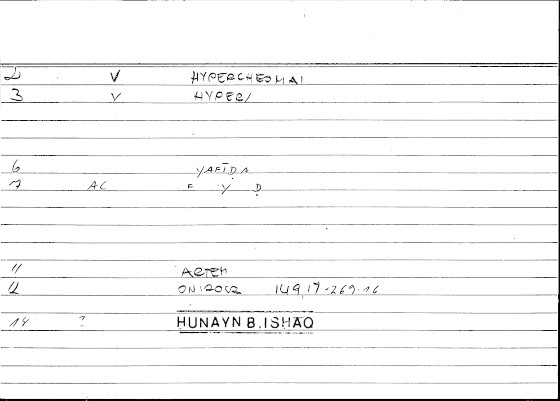 2 V HYPERCHESHAI
3 V HYPER/
6 YAFĪḌA
7 AC F Y Ḍ
11 ARTEM
12 ONIROCR 149,17-269.16
14 ? HUNAYN B. ISHAQ